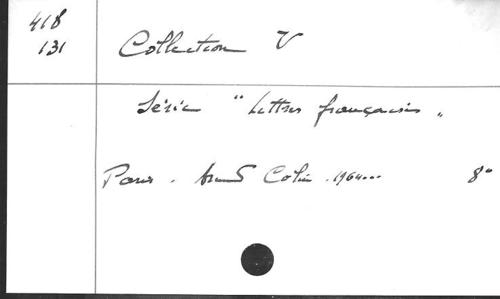 418
131
Collection U
Série "Lettres françaises"
Paris. Armand Colin. 1964... 8°